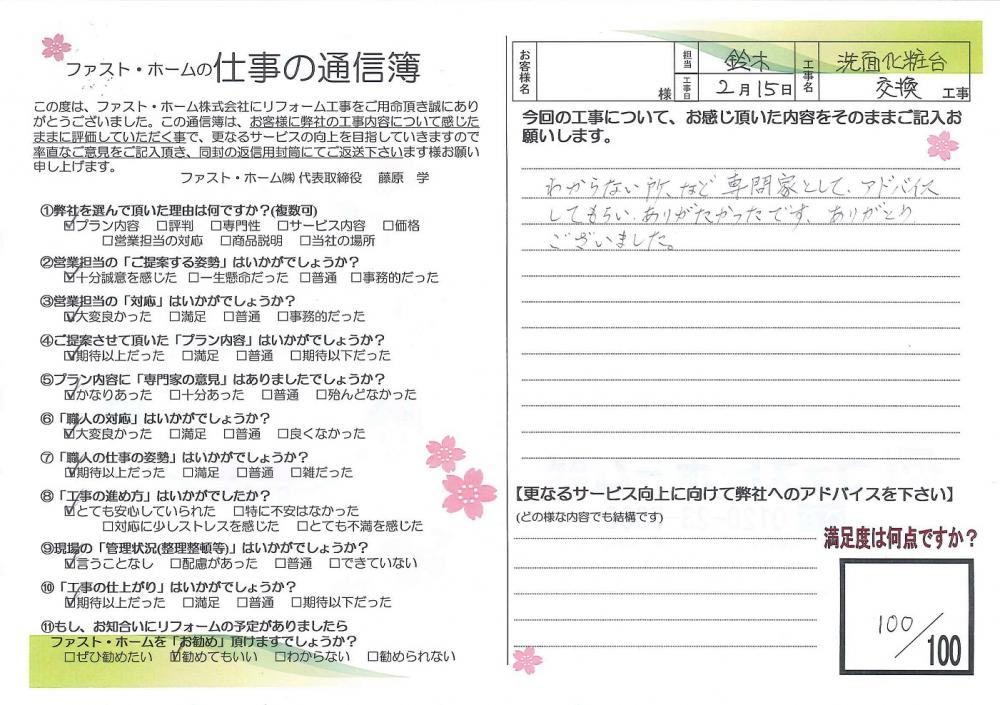 ファスト・ホームの仕事の通信簿
この度は、ファスト・ホーム株式会社にリフォーム工事をご用命頂き誠にあり
がとうございました。この通信簿は、お客様に弊社の工事内容について感じた
ままに評価していただく事で、更なるサービスの向上を目指していきますので
率直なご意見をご記入頂き、同封の返信用封筒にてご返送下さいます様お願い
申し上げます。
ファスト・ホーム㈱ 代表取締役 藤原 学
①弊社を選んで頂いた理由は何ですか?(複数可)
☑プラン内容 □評判 □専門性 □サービス内容 □価格
□営業担当の対応 □商品説明 □当社の場所
②営業担当の「ご提案する姿勢」はいかがでしょうか?
☑十分誠意を感じた □一生懸命だった □普通 □事務的だった
③営業担当の「対応」はいかがでしょうか?
☑大変良かった □満足 □普通 □事務的だった
④ご提案させて頂いた「プラン内容」はいかがでしょうか?
☑期待以上だった □満足 □普通 □期待以下だった
⑤プラン内容に「専門家の意見」はありましたでしょうか?
☑かなりあった □十分あった □普通 □殆んどなかった
⑥「職人の対応」はいかがでしょうか?
☑大変良かった □満足 □普通 □良くなかった
⑦「職人の仕事の姿勢」はいかがでしょうか?
☑期待以上だった □満足 □普通 □雑だった
⑧「工事の進め方」はいかがでしたか?
☑とても安心していられた □特に不安はなかった
□対応に少しストレスを感じた □とても不満を感じた
⑨現場の「管理状況(整理整頓等)」はいかがでしょうか?
☑言うことなし □配慮があった □普通 □できていない
⑩「工事の仕上がり」はいかがでしょうか?
☑期待以上だった □満足 □普通 □期待以下だった
⑪もし、お知合いにリフォームの予定がありましたら
ファスト・ホームを「お勧め」頂けますでしょうか?
□ぜひ勧めたい ☑勧めてもいい □わからない □勧められない
お客様名 様 担当 鈴木 工事日 2月15日 工事名 洗面化粧台
交換 工事
今回の工事について、お感じ頂いた内容をそのままご記入お
願いします。
わからない所、など専門家として、アドバイス
してもらい、ありがたかったです、ありがとう
ございました。
【更なるサービス向上に向けて弊社へのアドバイスを下さい】
(どの様な内容でも結構です)
満足度は何点ですか?
100/100